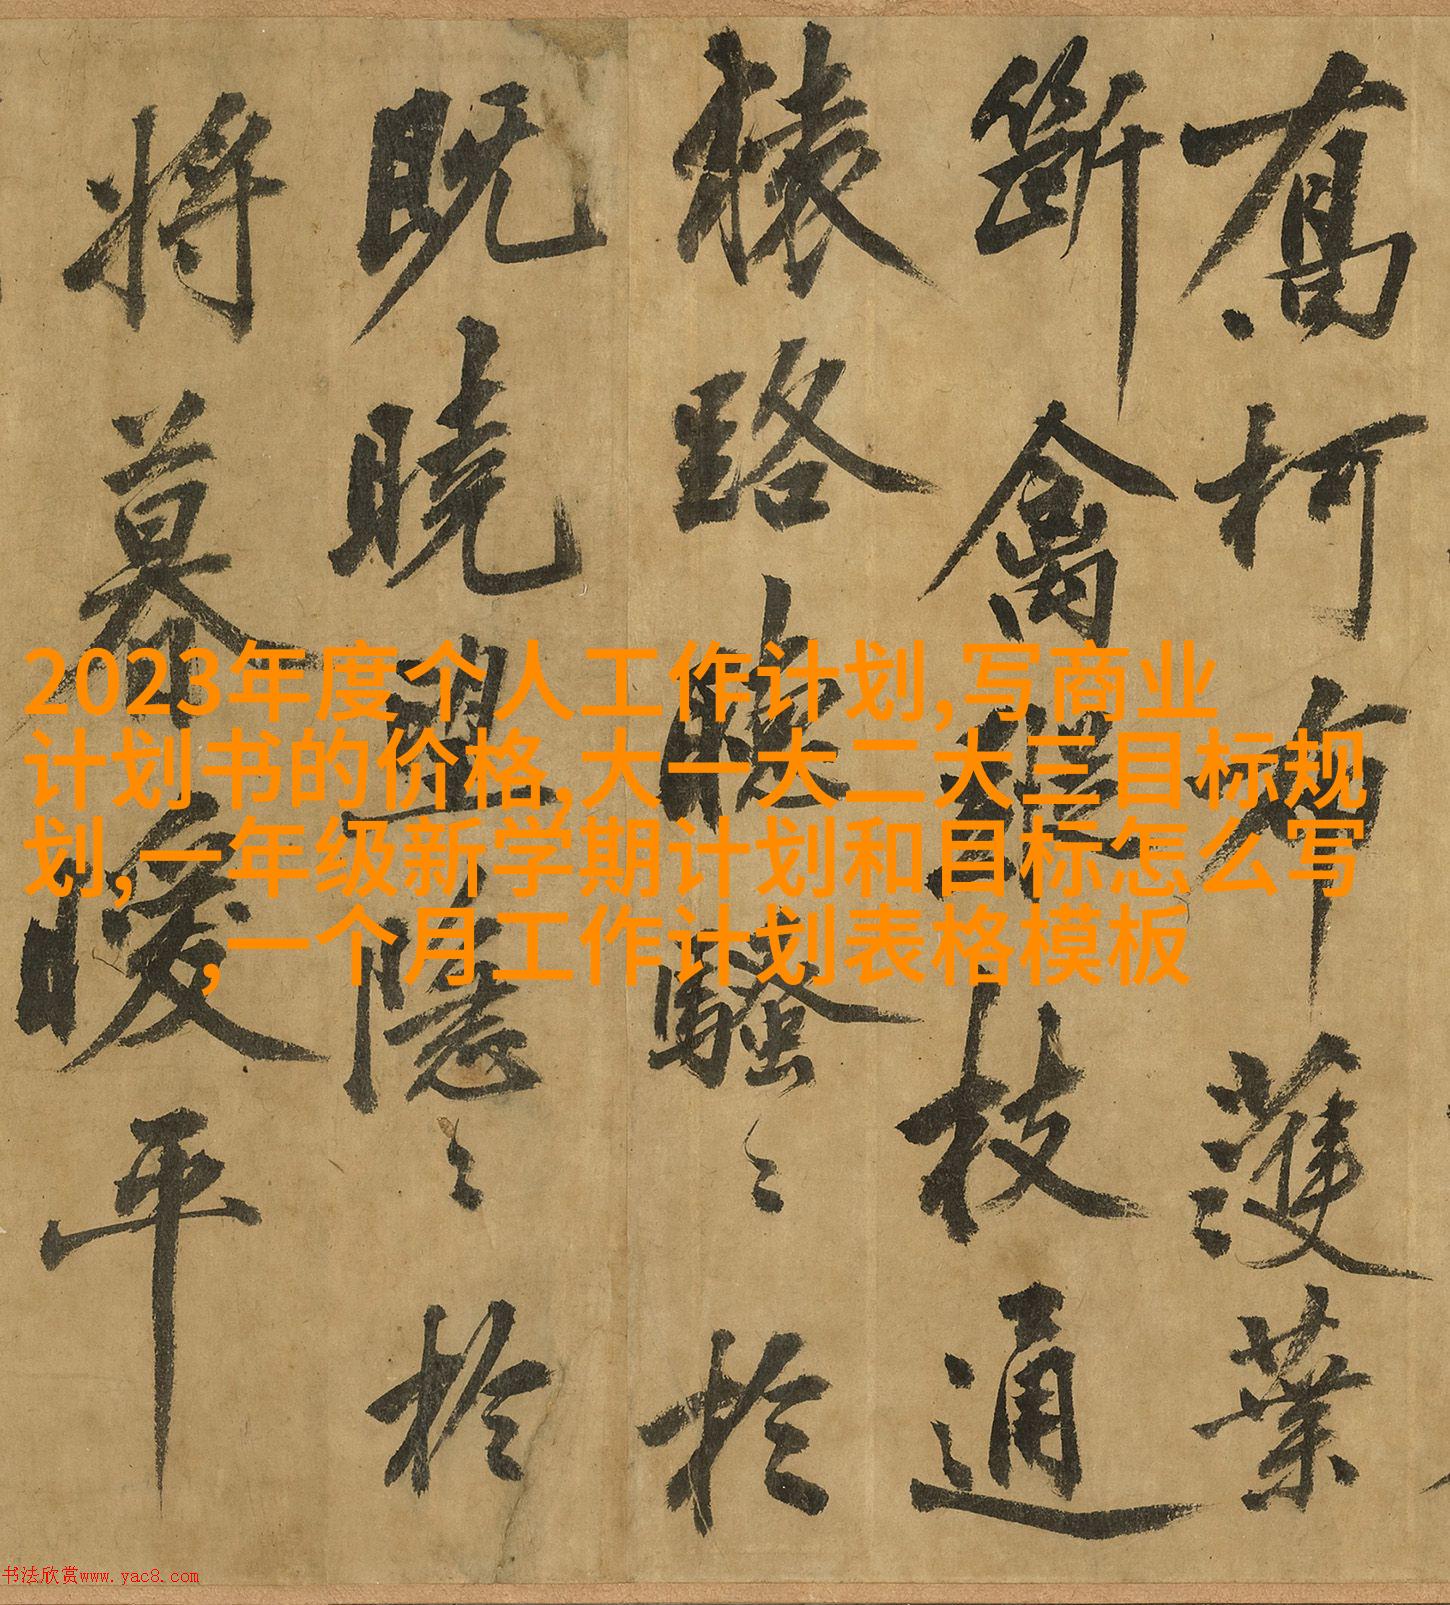 喬柯布濩葉
斷禽蹤枝通
猿路聽騷〻於
既曉望隱〻於
將暮暖平
2023年度个人工作计划,写商业
计划书的价格,大一大二大三目标规
划,一年级新学期计划和目标怎么写
,一个月工作计划表格模板
书法欣赏www.yac8.com